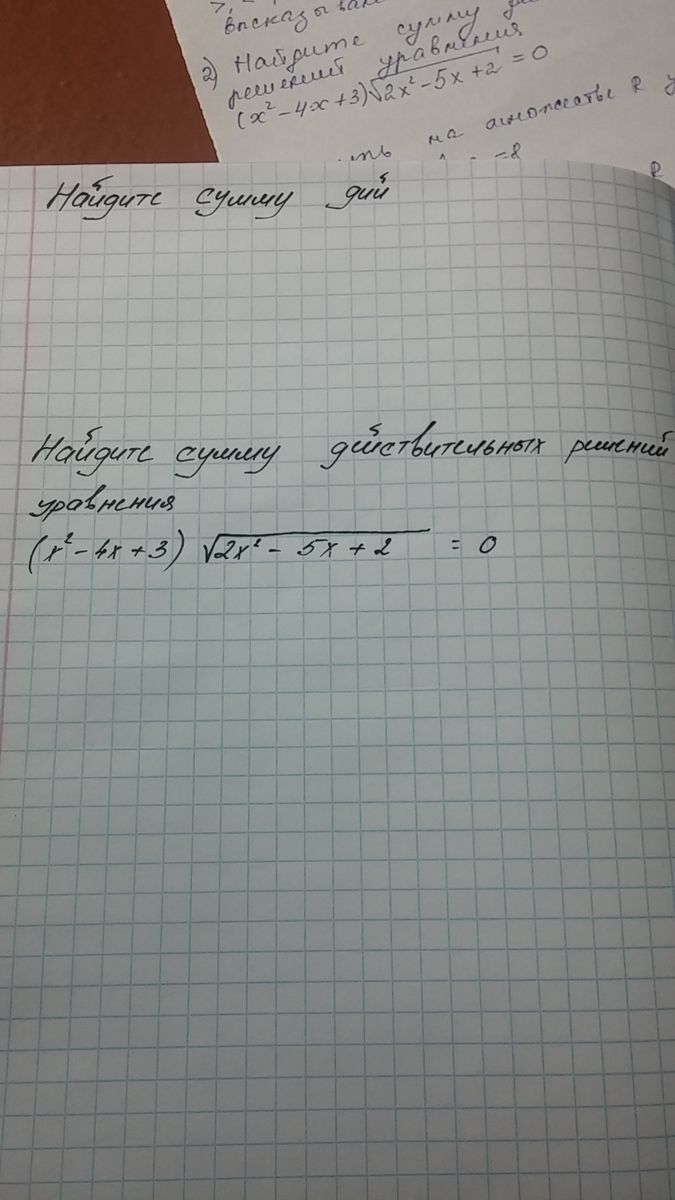 высказыван
2) Найдите сумму
решений уравнения
(x² - 4x + 3)√2x² - 5x + 2 = 0
на множестве R
= 8
R
Найдите сумму дий
Найдите сумму действительных решений
уравнения
(x² - 4x + 3) √2x² - 5x + 2 = 0